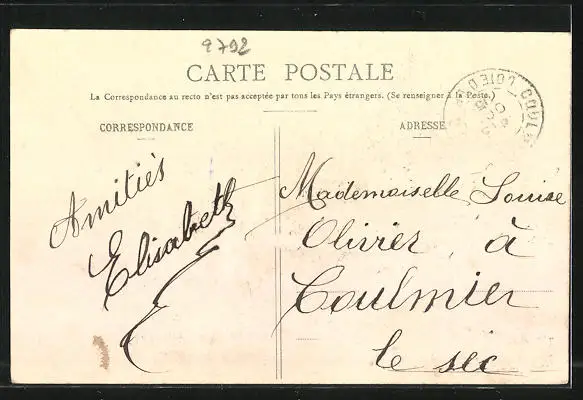 2792
CARTE POSTALE
La Correspondance au recto n'est pas acceptée par tous les Pays étrangers. (Se renseigner à la Poste.
CORRESPONDANCE
ADRESSE
Amitiés
Elisabeth
Mademoiselle Louise
Olivier à
Coulmier
le sec